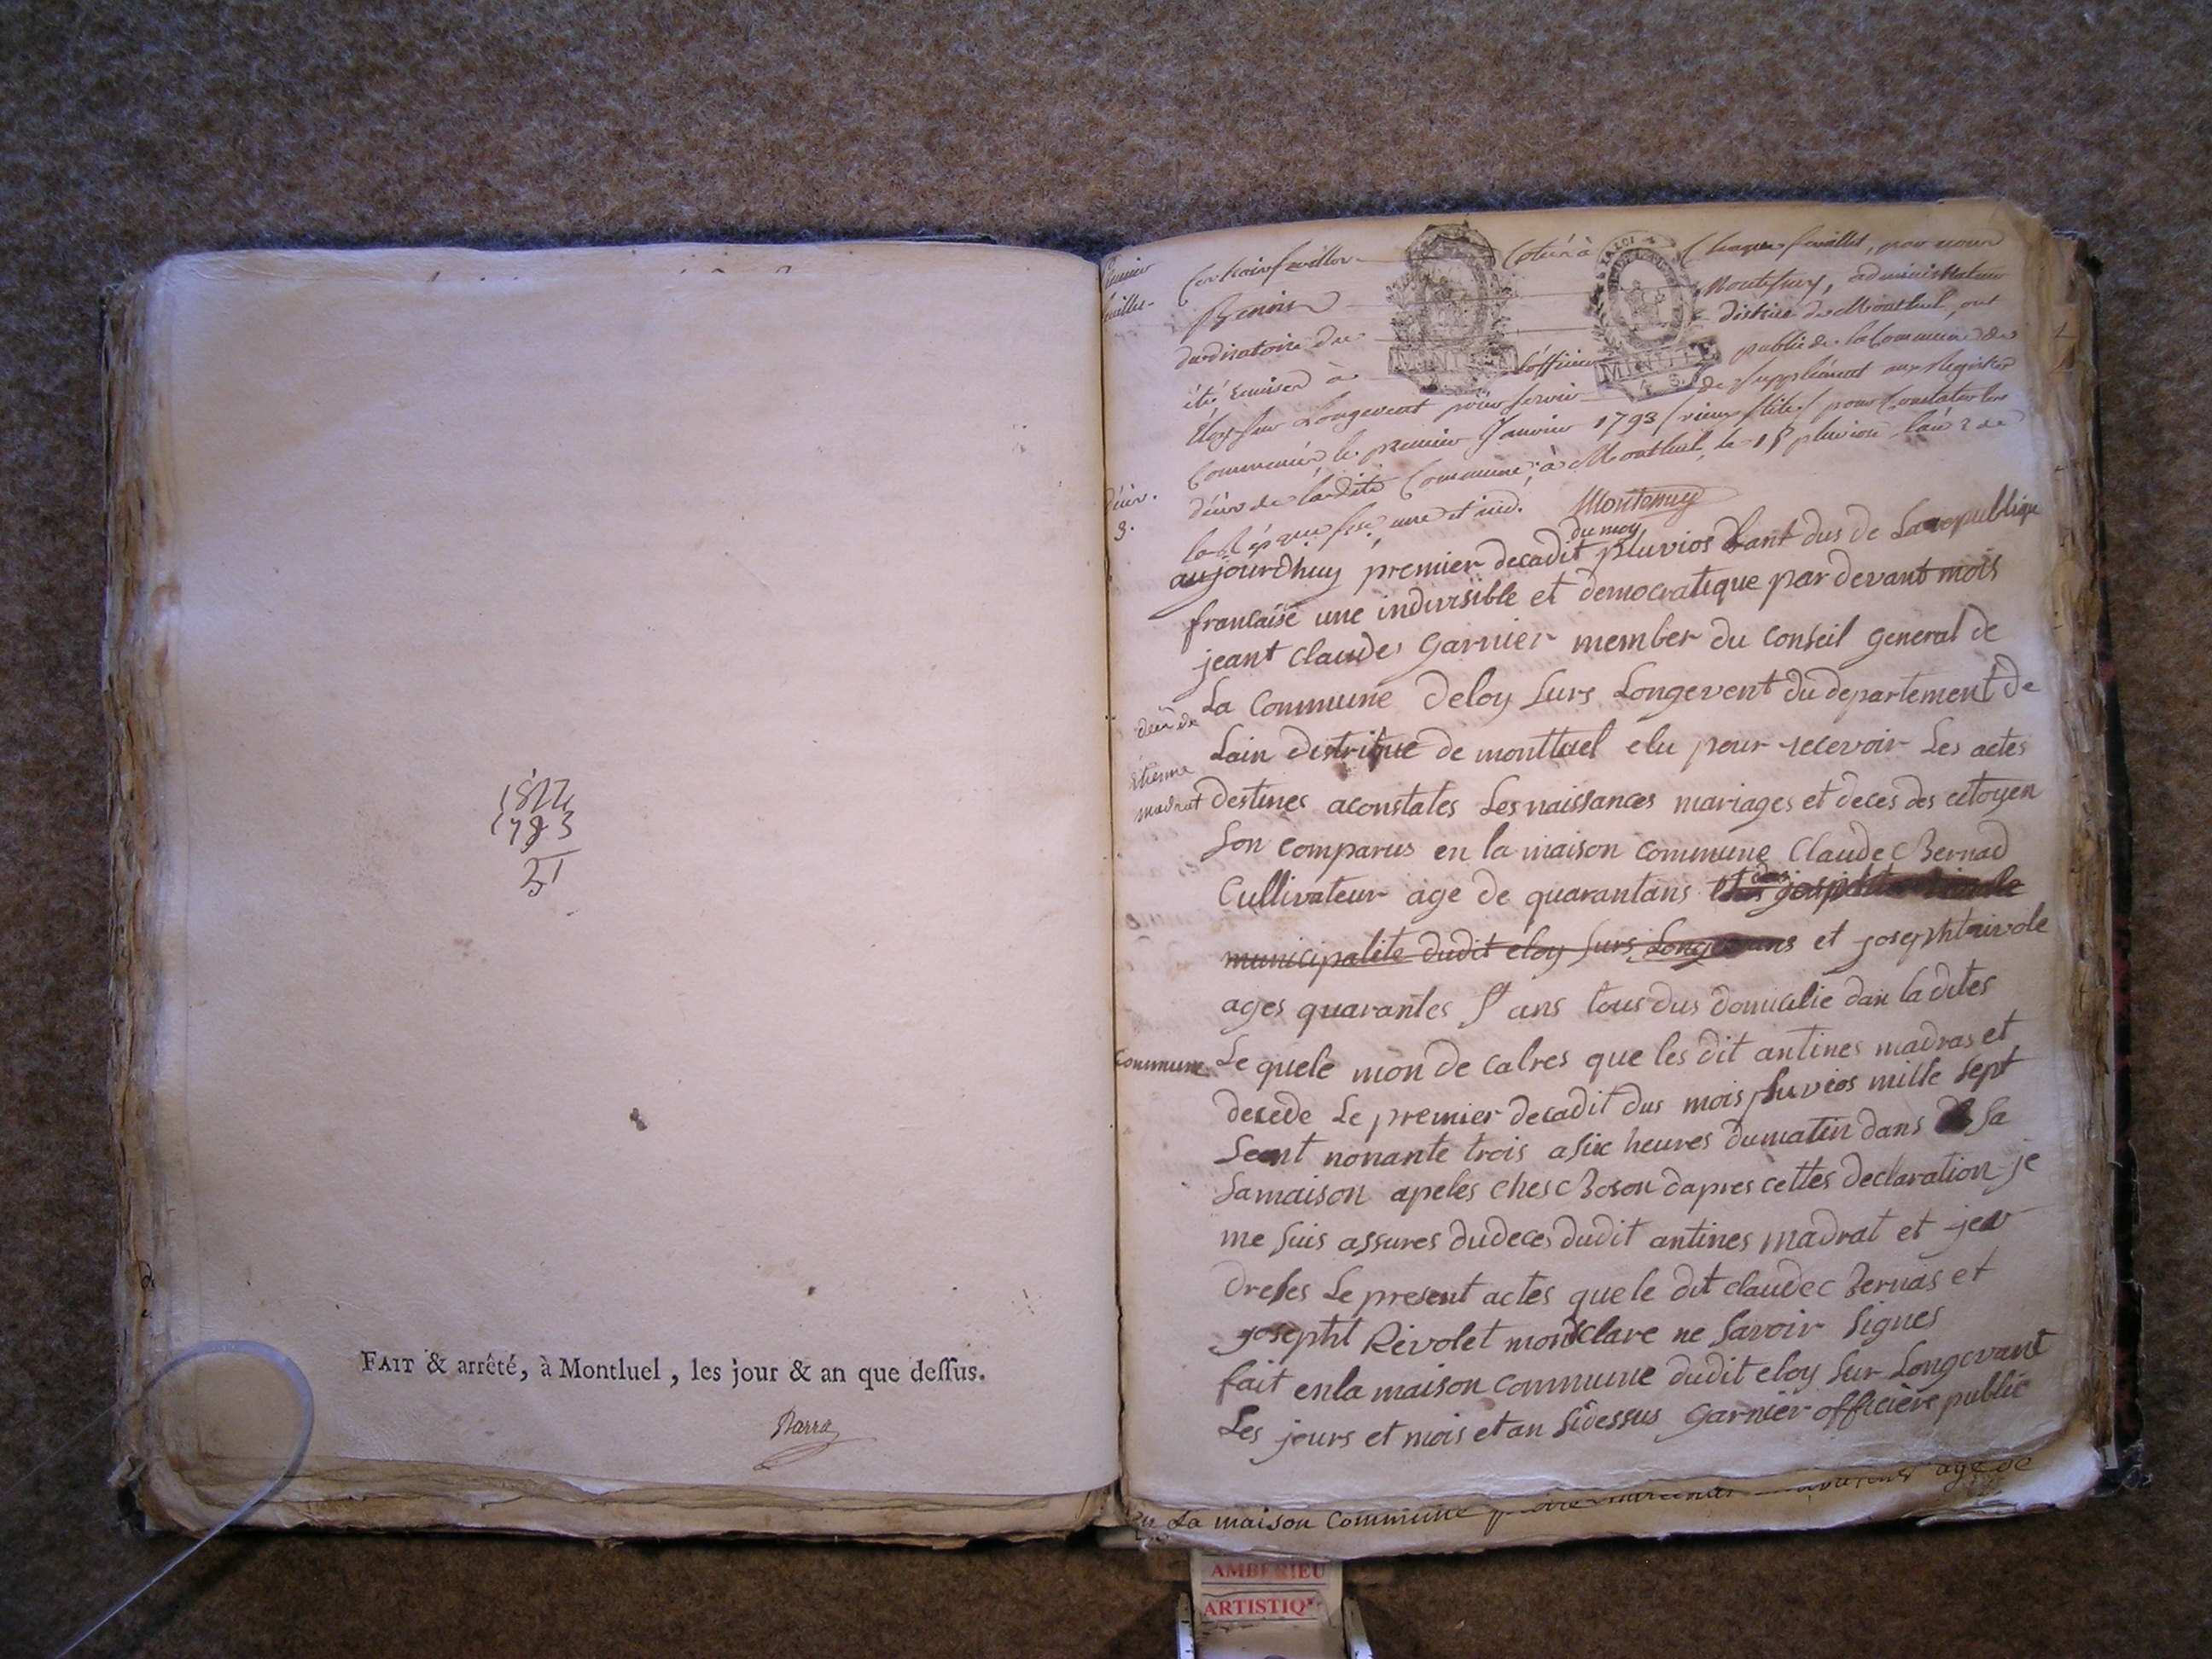 1822
1793
31
FAIT & arrêté, à Montluel, les jour & an que deſſus.
Barra
premier
feuillet
Ces trois feuillets Cotés à Chaque feuillet, par nous
administrateur
du diratoire du district de Montluel, ont
été remised à l'officier public de la Commune de
Eloy sur Longevent pour servir de supplément aux Registres
Commencés le premier Janvier 1793 (vieux stile) pour Constater les
décès de ladite Commune, à Montluel, le 18 pluviose l'an 2 de
la République une et ind.
MINUTE
LA LOI
MINUTE
4. S.
décès.
3.
du moy
aujourdhuy premier decadit pluvios lant dus de La republique
francaise une indivisible et democratique par devant mois
jeant claudes garnier member du conseil general de
La Commune deloy surs Longevent du departement de
Lain distrique de montluel elu pour recevoir Les actes
destines aconstates Les naissances mariages et deces des citoyen
décès de
étienne
madrat
Son comparus en la maison commune Claude Bernad
Cullivateur age de quarantans
municipalite dudit eloy surs Longevans et josepht rivole
ages quarantes ans tous dus domicilie dan la dites
commune. Le quele mon de calres que les dit antines madras et
decede Le premier decadit dus mois pluvios mille sept
Seent nonante trois a six heures du matin dans sa
Samaison apeles ches Boson dapres cettes declaration je
me suis assures dudeces dudit antines madrat et jea
dreses Le present actes quele dit claude Bernas et
josepht Revolet monclare ne savoir signes
fait enla maison commune dudit eloy sur Longevant
Les jours et mois et an sidessus garnier officière public
en La maison Commune age de
AMBERIEU
ARTISTIQ